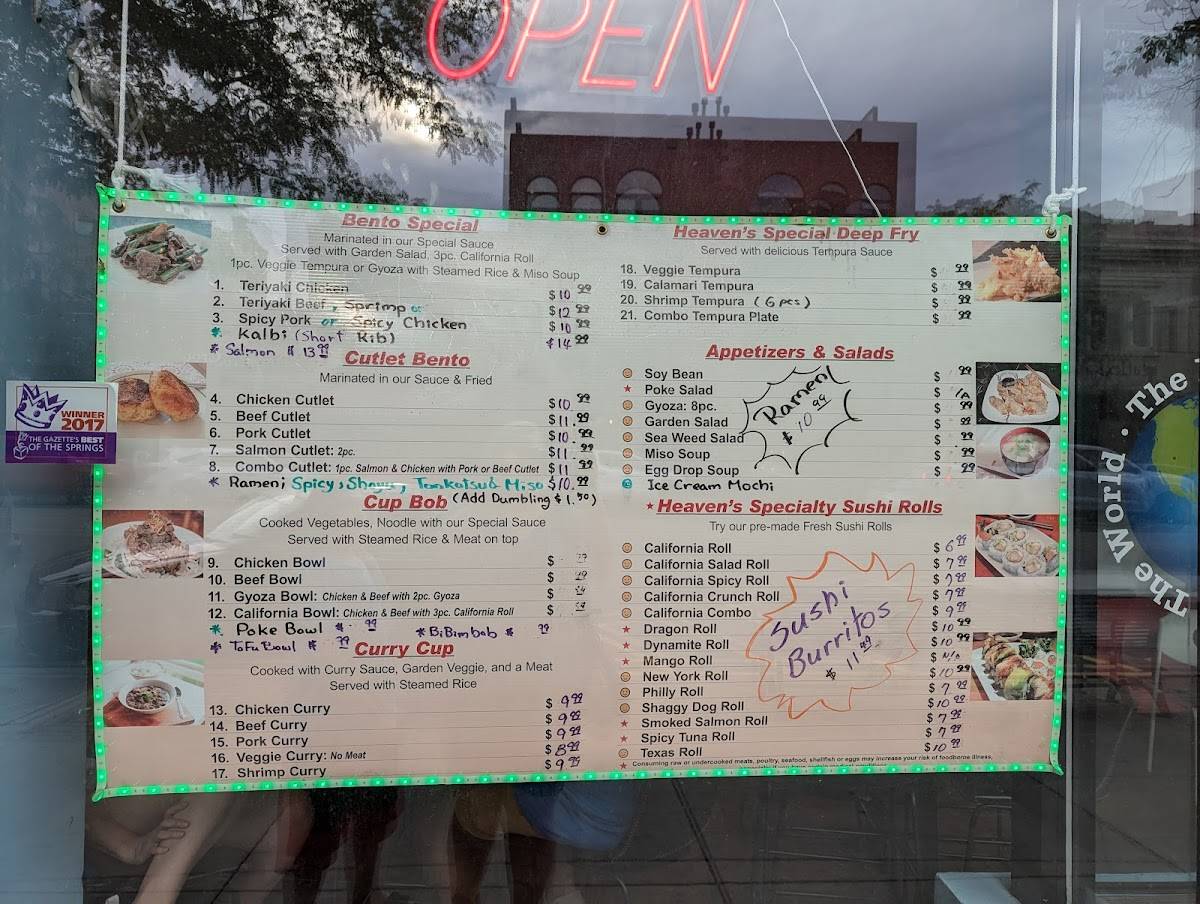 OPEN
Bento Special
Marinated in our Special Sauce
Served with Garden Salad, 3pc. California Roll
1pc. Veggie Tempura or Gyoza with Steamed Rice & Miso Soup
1. Teriyaki Chicken $10 99
2. Teriyaki Beef, Sprimp or $12 99
3. Spicy Pork or Spicy Chicken $10 99
* Kalbi (Short Rib) $14 99
* Salmon $ 13 99
Cutlet Bento
Marinated in our Sauce & Fried
4. Chicken Cutlet $10 99
5. Beef Cutlet $11.99
6. Pork Cutlet $10.99
7. Salmon Cutlet: 2pc. $11.99
8. Combo Cutlet: 1pc. Salmon & Chicken with Pork or Beef Cutlet $11 99
* Ramen; Spicy, Shoyu, Tonkotsu & Miso $10.99
(Add Dumbling $1.50)
Cup Bob
Cooked Vegetables, Noodle with our Special Sauce
Served with Steamed Rice & Meat on top
9. Chicken Bowl $
10. Beef Bowl $
11. Gyoza Bowl: Chicken & Beef with 2pc. Gyoza $
12. California Bowl: Chicken & Beef with 3pc. California Roll $
* Poke Bowl $ 99 * BiBimbob $ 99
* Tofu Bowl $ 99
Curry Cup
Cooked with Curry Sauce, Garden Veggie, and a Meat
Served with Steamed Rice
13. Chicken Curry $ 9 99
14. Beef Curry $ 9 99
15. Pork Curry $ 9 99
16. Veggie Curry: No Meat $ 8 99
17. Shrimp Curry $ 9 99
Heaven's Special Deep Fry
Served with delicious Tempura Sauce
18. Veggie Tempura $ 99
19. Calamari Tempura $ 99
20. Shrimp Tempura (6 pcs) $ 99
21. Combo Tempura Plate $ 99
Appetizers & Salads
Soy Bean $ 99
Poke Salad $
Gyoza: 8pc. $ 99
Garden Salad $ 99
Sea Weed Salad $ 99
Miso Soup $ 99
Egg Drop Soup $ 99
Ice Cream Mochi
Ramen!
$ 10 99
★ Heaven's Specialty Sushi Rolls
Try our pre-made Fresh Sushi Rolls
California Roll $ 6 99
California Salad Roll $ 7 99
California Spicy Roll $ 7 99
California Crunch Roll $ 7 99
California Combo $ 9 99
★ Dragon Roll $ 10 99
★ Dynamite Roll $ 10 99
★ Mango Roll $ N/A
New York Roll $ 10 99
Philly Roll $ 7 99
Shaggy Dog Roll $ 10 99
★ Smoked Salmon Roll $ 7 99
★ Spicy Tuna Roll $ 7 99
Texas Roll $ 10 99
★ Consuming raw or undercooked meats, poultry, seafood, shellfish or eggs may increase your risk of foodborne illness,
Sushi
Burritos
$ 11.99
WINNER
2017
THE GAZETTE'S BEST
OF THE SPRINGS
The World · The